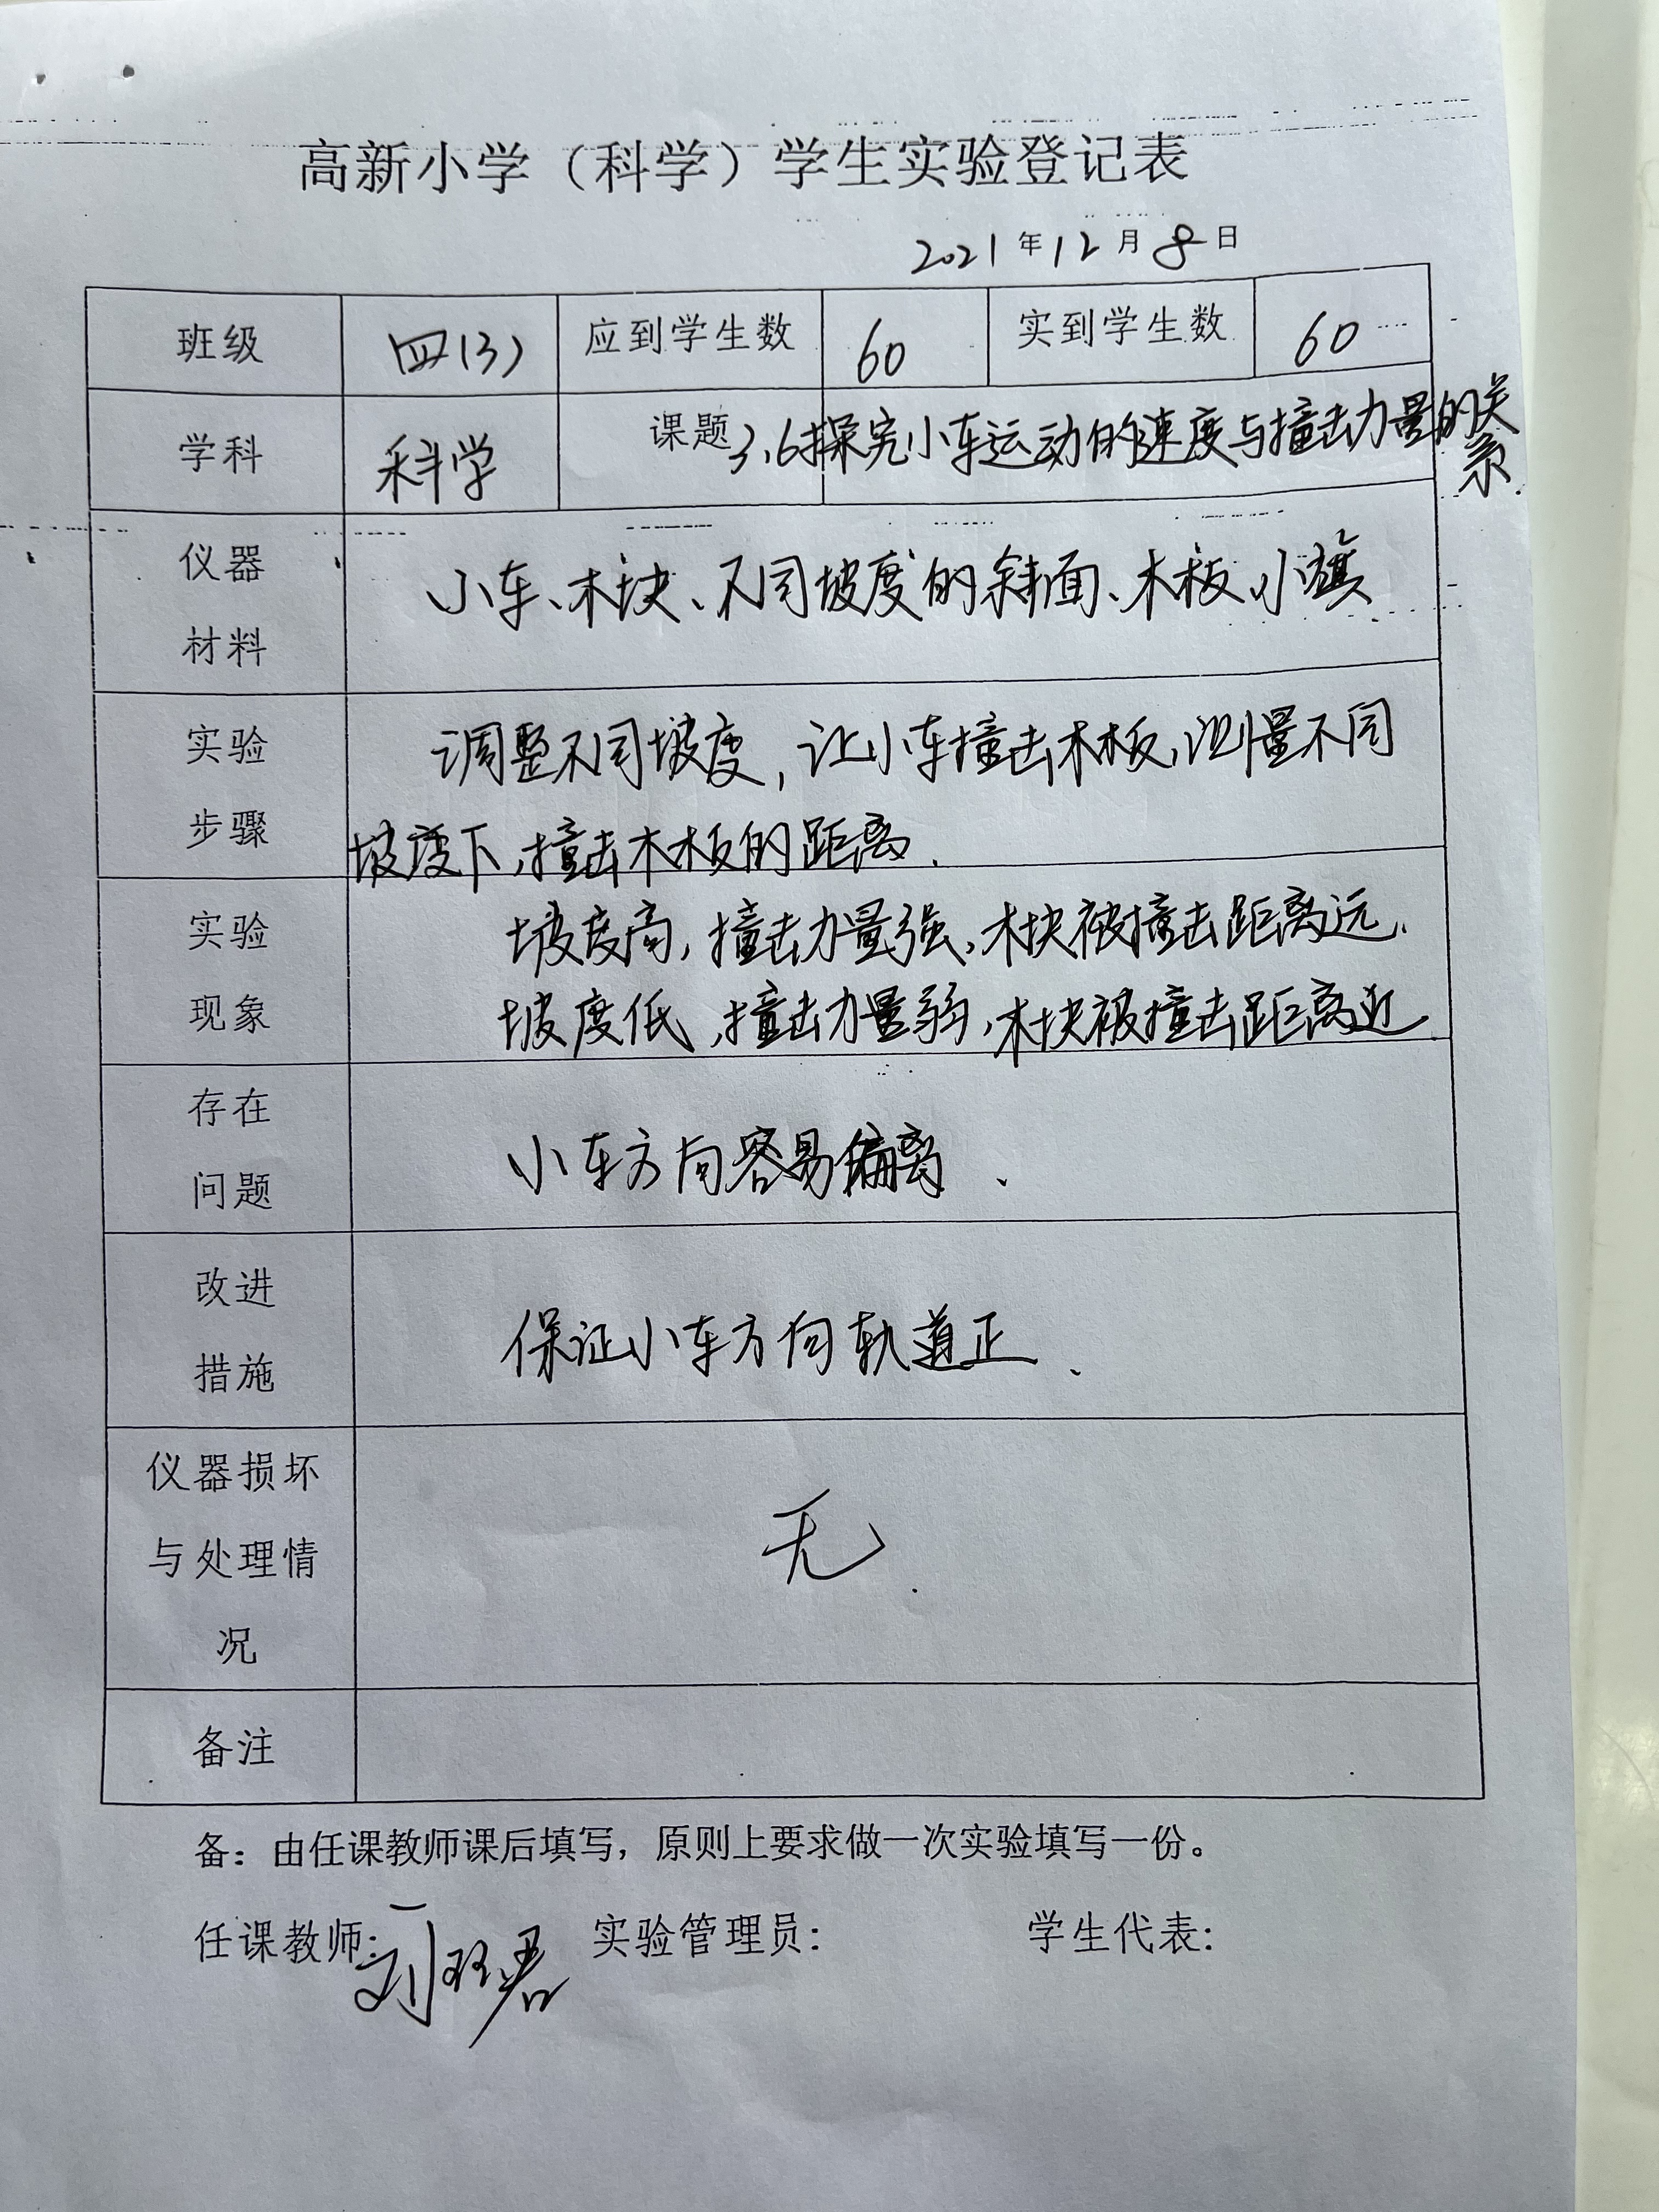 高新小学（科学）学生实验登记表
2021年12月8日
班级 四(3) 应到学生数 60 实到学生数 60
学科 科学 课题 3.6探究小车运动的速度与撞击力量的关
系.
仪器
材料
小车、木块、不同坡度的斜面、木板、小旗
实验
步骤
调整不同坡度,让小车撞击木板,测量不同
坡度下,撞击木板的距离.
实验
现象
坡度高,撞击力量强,木块被撞击距离远.
坡度低,撞击力量弱,木块被撞击距离近.
存在
问题
小车方向容易偏离、
改进
措施
保证小车方向轨道正、
仪器损坏
与处理情
况
无.
备注
备：由任课教师课后填写，原则上要求做一次实验填写一份。
任课教师: 刘 君 实验管理员: 学生代表: